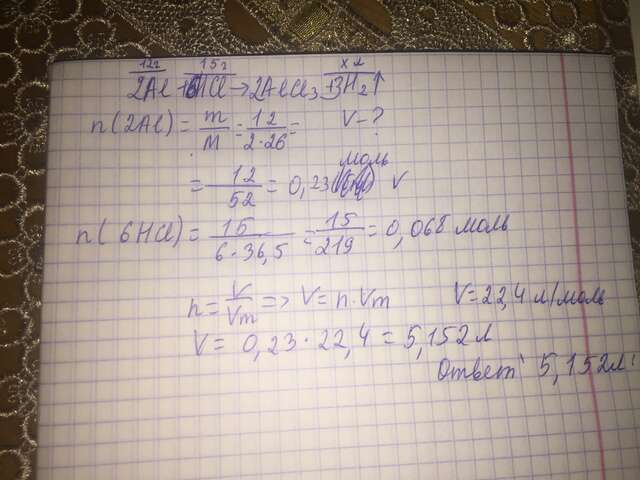 12г 15г х л
2Al + 6HCl → 2AlCl3 + 3H2↑
n(2Al) = m/M = 12/2·26 = V-?
= 12/52 = 0,23 моль V
n(6HCl) = 15/6·36,5 = 15/219 = 0,068 моль
n = V/Vm => V = n·Vm V = 22,4 л/моль
V = 0,23·22,4 = 5,152 л
Ответ: 5,152л